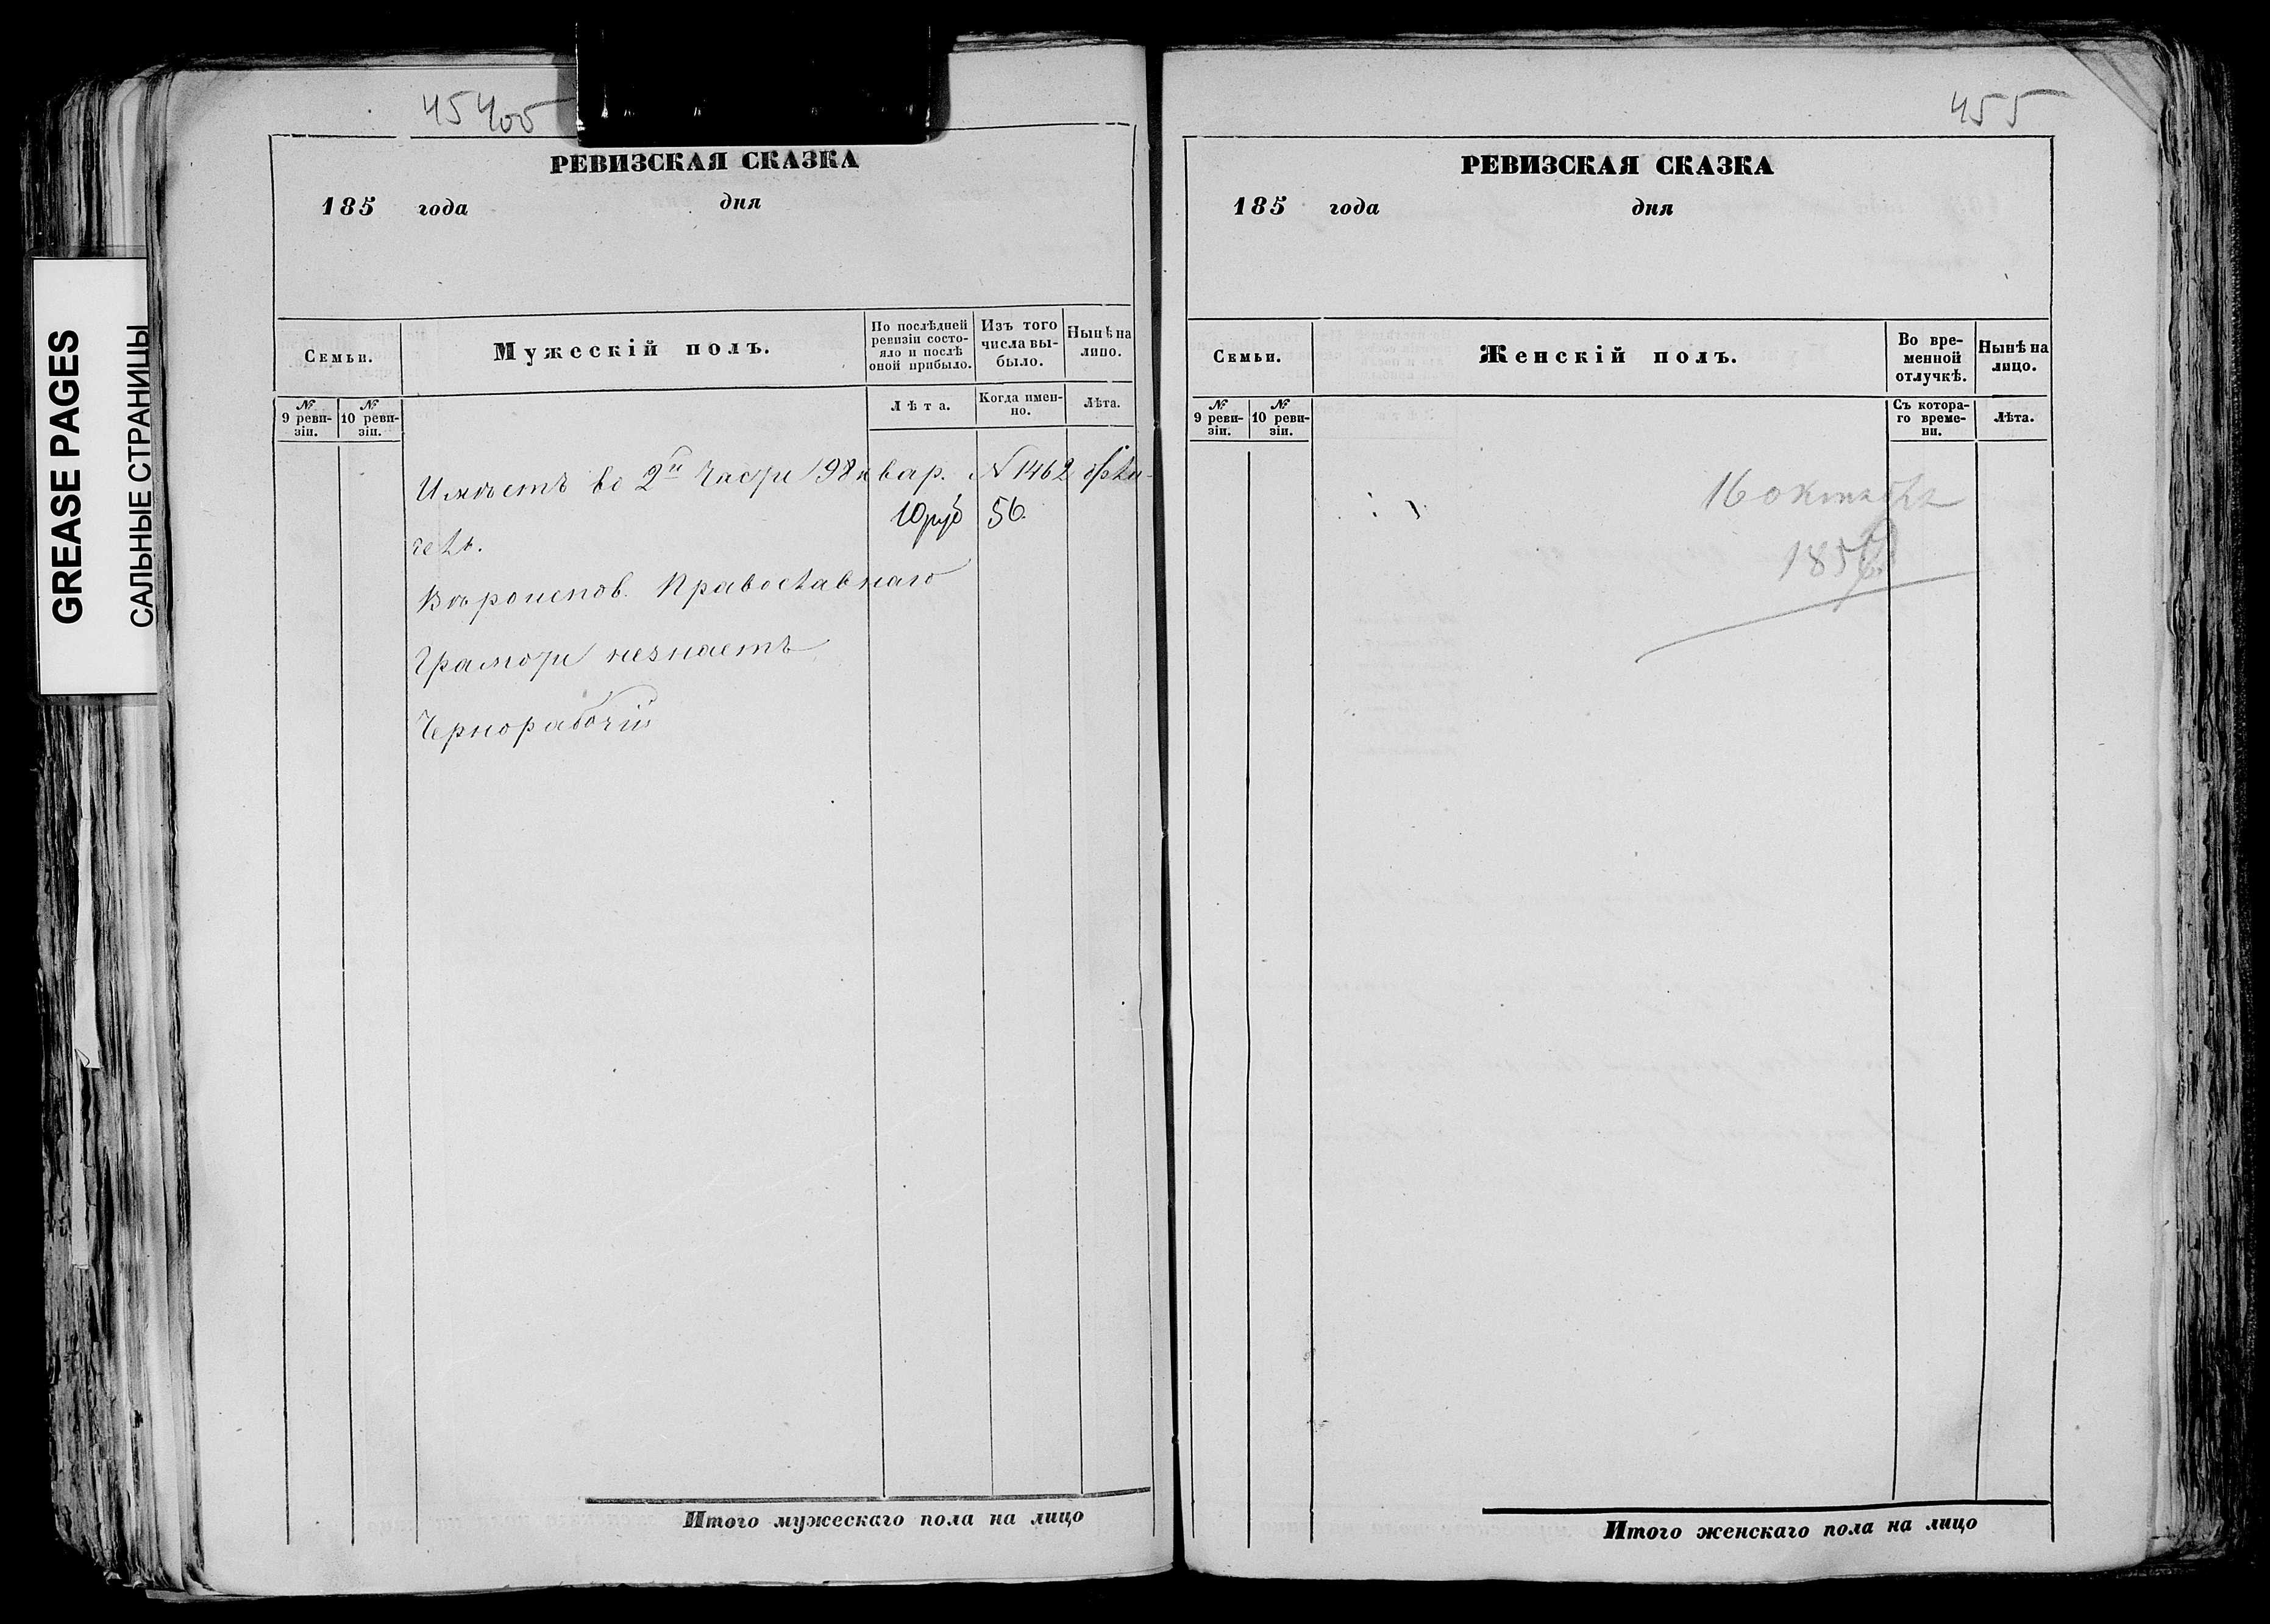 GREASE PAGES
САЛЬНЫЕ СТРАНИЦЫ
РЕВИЗСКАЯ СКАЗКА
185 года дня
Семьи.
Мужескій полъ.
По послѣдней ревизіи состо-
яло и послѣ
оной прибыло.
Изъ того
числа вы-
было.
Нынѣ на
лицо.
№
9 реви-
зіи.
№
10 реви-
зіи.
Лѣта.
Когда имен-
но.
Лѣта.
Имѣетъ во 2й части 198 квар. № 1462
10 руб 56
Вѣроисповѣд. Православнаго
Грамоты незнаетъ
Чернорабочій
Итого мужескаго пола на лицо
455
РЕВИЗСКАЯ СКАЗКА
185 года дня
Семьи.
Женскій полъ.
Во вре-
менной
отлучкѣ.
Нынѣ на
лицо.
№
9 реви-
зіи.
№
10 реви-
зіи.
Съ котора-
го време-
ни.
Лѣта.
16 октября
Итого женскаго пола на лицо